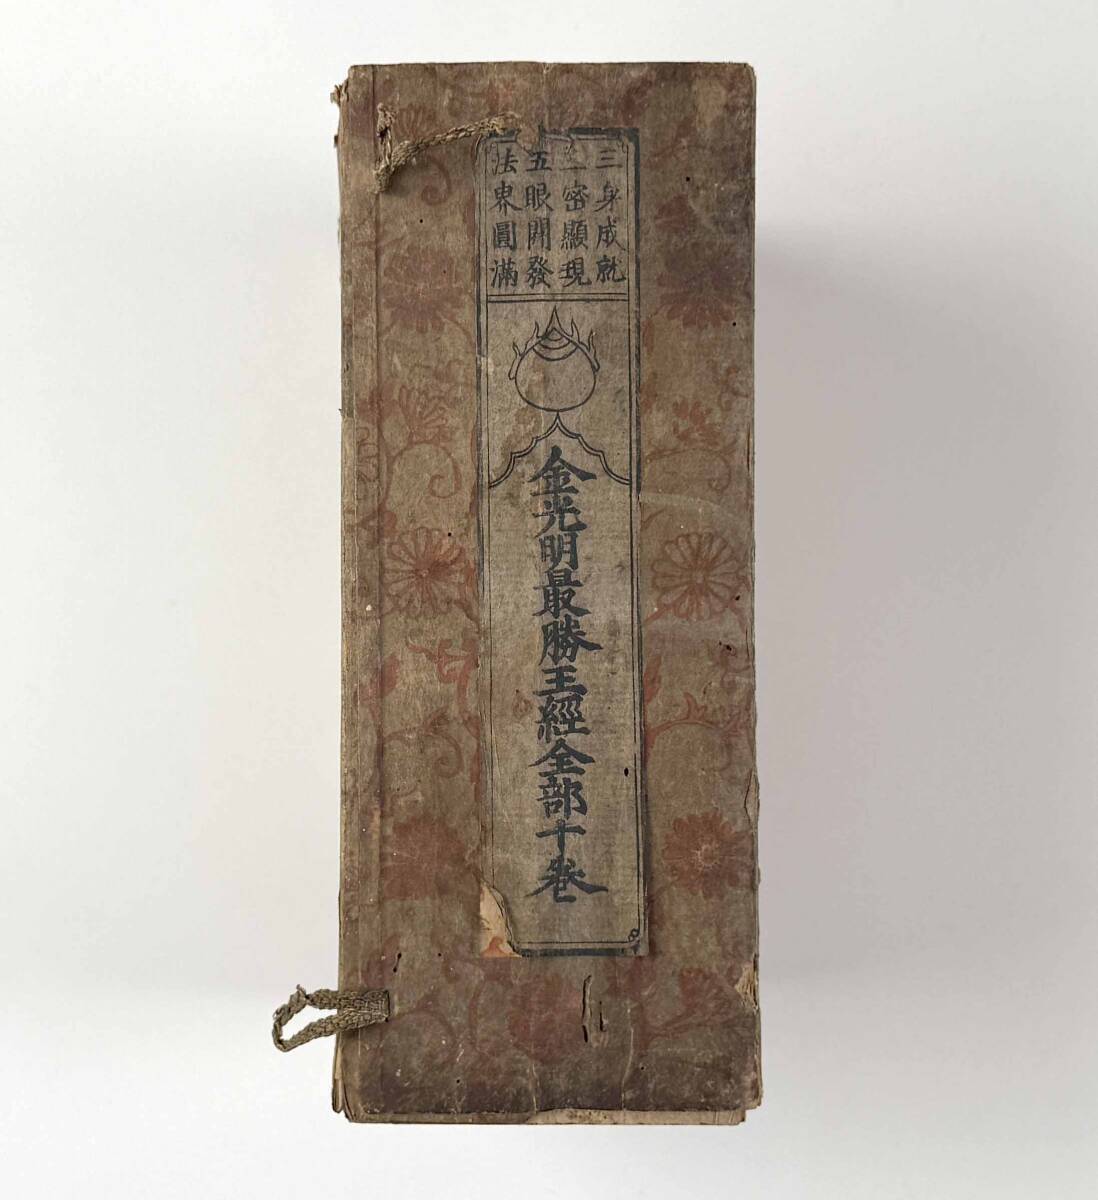 三身成就
三密顯現
五眼開發
法界圓滿
金光明最勝王經全部十卷